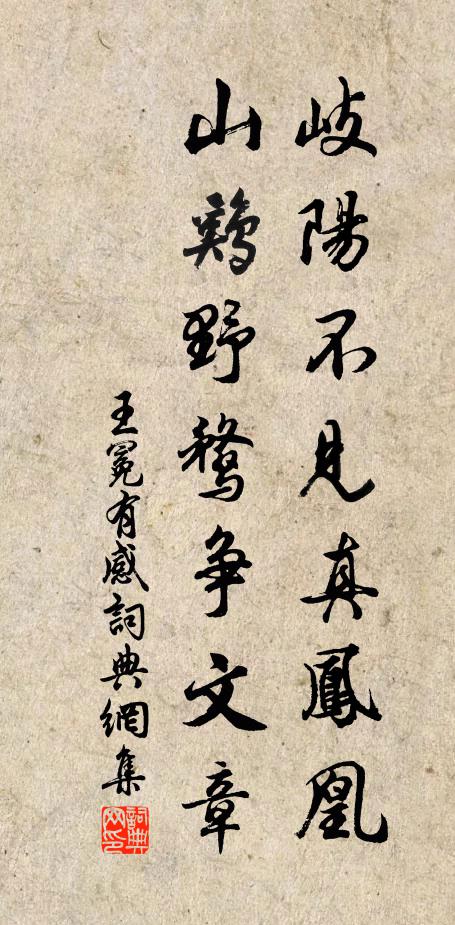 岐陽不見真鳳凰
山鷄野鶩爭文章
王冕有感詞典網集
詞典網印